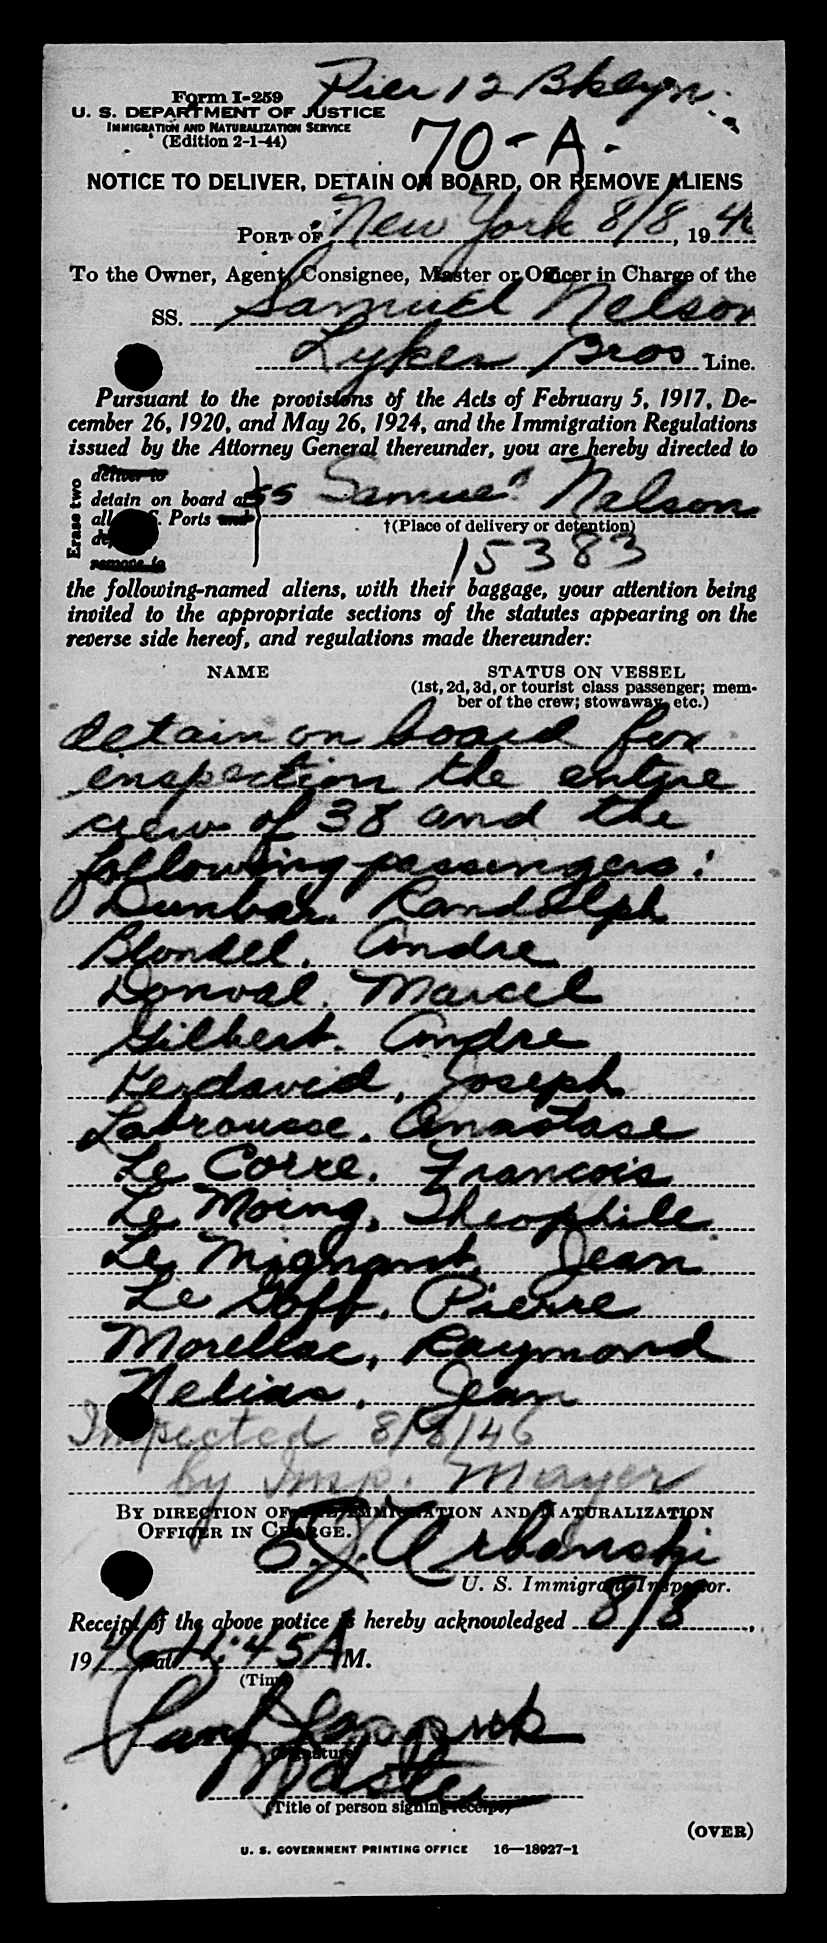 Pier 12 Bklyn.
Form I-259
U. S. DEPARTMENT OF JUSTICE
IMMIGRATION AND NATURALIZATION SERVICE
(Edition 2-1-44)
70-A.
NOTICE TO DELIVER, DETAIN ON BOARD, OR REMOVE ALIENS
PORT OF New York 8/8, 1946
To the Owner, Agent, Consignee, Master or Officer in Charge of the
SS. Samuel Nelson
Lykes Bros Line.
Pursuant to the provisions of the Acts of February 5, 1917, De-
cember 26, 1920, and May 26, 1924, and the Immigration Regulations
issued by the Attorney General thereunder, you are hereby directed to
Erase two
deliver to
detain on board at SS Samuel Nelson
all U. S. Ports and
†(Place of delivery or detention)
remove to
15383
the following-named aliens, with their baggage, your attention being
invited to the appropriate sections of the statutes appearing on the
reverse side hereof, and regulations made thereunder:
NAME STATUS ON VESSEL
(1st, 2d, 3d, or tourist class passenger; mem-
ber of the crew; stowaway, etc.)
detain on board for
inspection the entire
crew of 38 and the
following passengers:
Dunbar, Randolph
Blondel, Andre
Donval, Marcel
Gilbert, Andre
Kerdavid, Joseph
Labrousse, Anastase
Le Corre, Francois
Le Moing, Theophile
Le Mignant, Jean
Le Goff, Pierre
Morellac, Raymond
Nelias, Jean
Inspected 8/8/46
by Insp. Mayer
BY DIRECTION OF THE IMMIGRATION AND NATURALIZATION
OFFICER IN CHARGE.
E. J. Urbanski
U. S. Immigrant Inspector.
Receipt of the above notice is hereby acknowledged 8/8,
1946 at 11:45 A M.
(Time)
(Signature)
Master
(Title of person signing receipt)
(OVER)
U. S. GOVERNMENT PRINTING OFFICE 16—18927-1